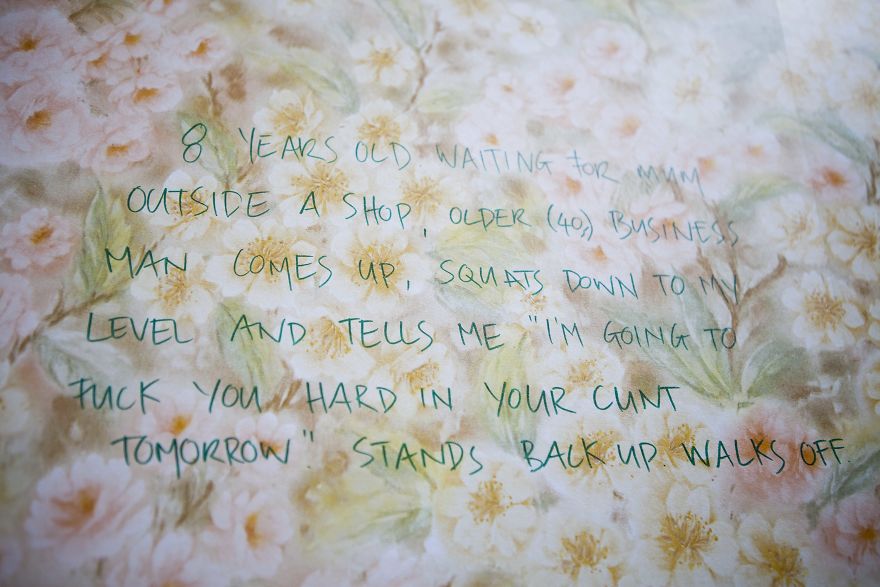 8 YEARS OLD. WAITING FOR MUM
OUTSIDE A SHOP, OLDER (40s) BUSINESS
MAN COMES UP, SQUATS DOWN TO MY
LEVEL AND TELLS ME "I'M GOING TO
FUCK YOU HARD IN YOUR CUNT
TOMORROW" STANDS BACK UP. WALKS OFF.